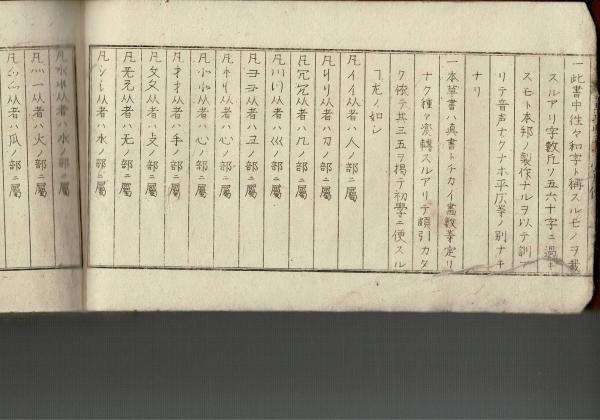 一此書中往々和字ト稱スルモノヲ載
スルアリ字數凡ソ五六十字ニ過キ
スモト本邦ノ製作ナルヲ以テ訓ア
リテ音声ナクナホ平仄等ノ別ナキ
ナリ
一本草書ハ真書トチカイ畫数等定リ
ナク種々変轉スルアリテ顧引カタ
ク依テ其三五ヲ掲テ初學ニ便スル
ヿ尤ノ如シ
凡イ亻从者ハ人ノ部ニ屬
凡刂リ从者ハ刀ノ部ニ屬
凡冗冖从者ハ几ノ部ニ屬
凡川巛从者ハ巛ノ部ニ屬
凡ヨヨ从者ハヨノ部ニ屬
凡忄从者ハ心ノ部ニ屬
凡小㣺从者ハ心ノ部ニ屬
凡扌才从者ハ手ノ部ニ屬
凡攵攵从者ハ攴ノ部ニ屬
凡无旡从者ハ无ノ部ニ屬
凡氵从者ハ水ノ部ニ屬
凡水氺从者ハ水ノ部ニ屬
凡灬一从者ハ火ノ部ニ屬
凡从者ハ瓜ノ部ニ屬